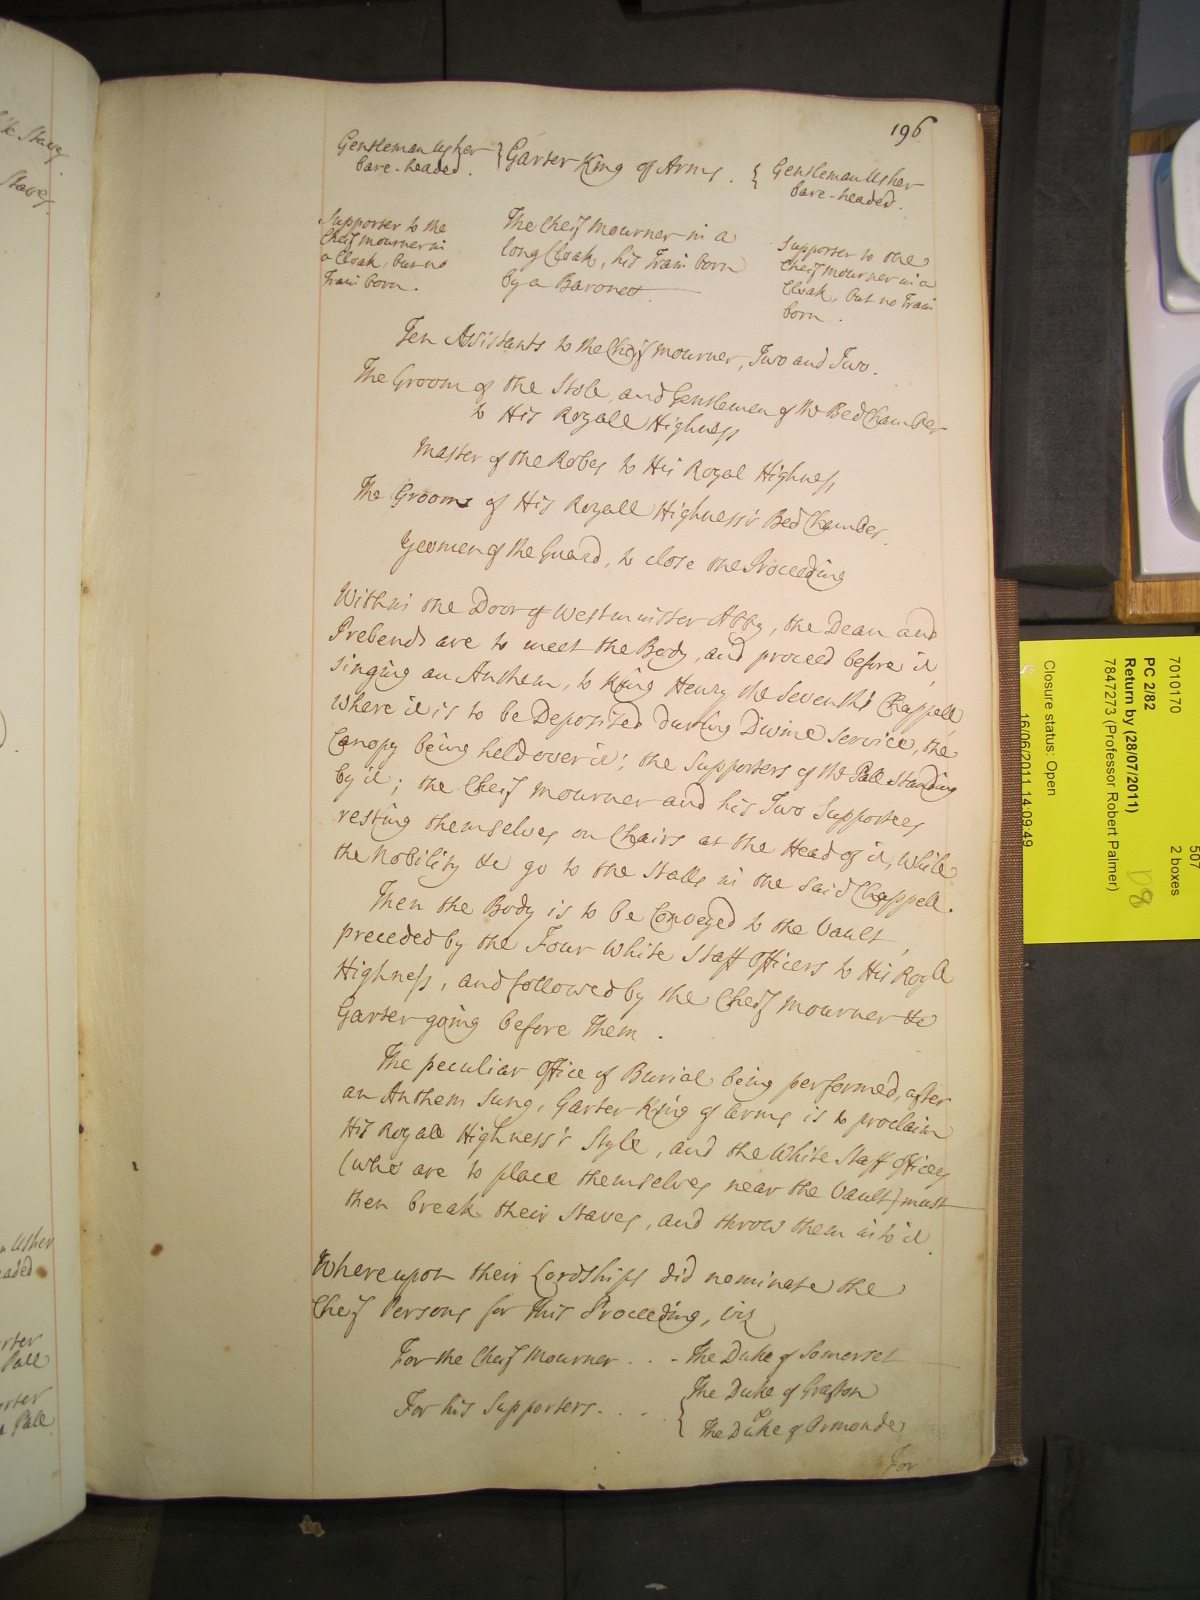 196
Gentleman Usher } Garter King of Arms . { Gentleman Usher
bare-headed . bare-headed .
Supporter to the
Cheif mourner in
a Cloak, but no
Train born .
The Cheif Mourner in a
long Cloak, his Train born
by a Baronet
Supporter to the
Cheif mourner in a
Cloak, but no Train
born .
Ten Assistants to the Cheif mourner, Two and Two .
The Groom of the Stole, and Gentlemen of the Bed Chamber
to His Royall Highness
Master of the Robes to His Royal Highness
The Grooms of His Royall Highness's Bed Chamber .
Yeomen of the Guard, to close the Proceeding
Within the Door of Westminster Abby, the Dean and
Prebends are to meet the Body, and proceed before it
singing an Anthem, to King Henry the Seventh's Chappell
where it is to be Deposited during Divine Service, the
Canopy being held over it ; the Supporters of the Pall standing
by it ; the Cheif Mourner and his Two Supporters
resting themselves on Chairs at the Head of it, while
the Nobility &c go to the Stalls in the said Chappell .
Then the Body is to be Conveyed to the Vault,
preceded by the Four White Staff Officers to His Royll
Highness, and followed by the Cheif Mourner &c
Garter going before Them .
The peculiar Office of Burial being performed, after
an Anthem Sung, Garter King of Arms is to proclaim
His Royall Highness's Style, and the White Staff Officers
(who are to place themselves near the Vault) must
then break their Staves, and throw them into it .
Whereupon their Lordships did nominate the
Cheif Persons for this Proceeding, viz
For the Cheif Mourner . . - The Duke of Somerset
For his Supporters . . . { The Duke of Grafton
The Duke of Ormonde
For
Staves
n Usher
eaded
rter
Pall
orter
Pall
7010170
PC 2/82
Return by (28/07/2011)
7847273 (Professor Robert Palmer)
Closure status: Open
16/06/2011 14:09:49
507
2 boxes
D8